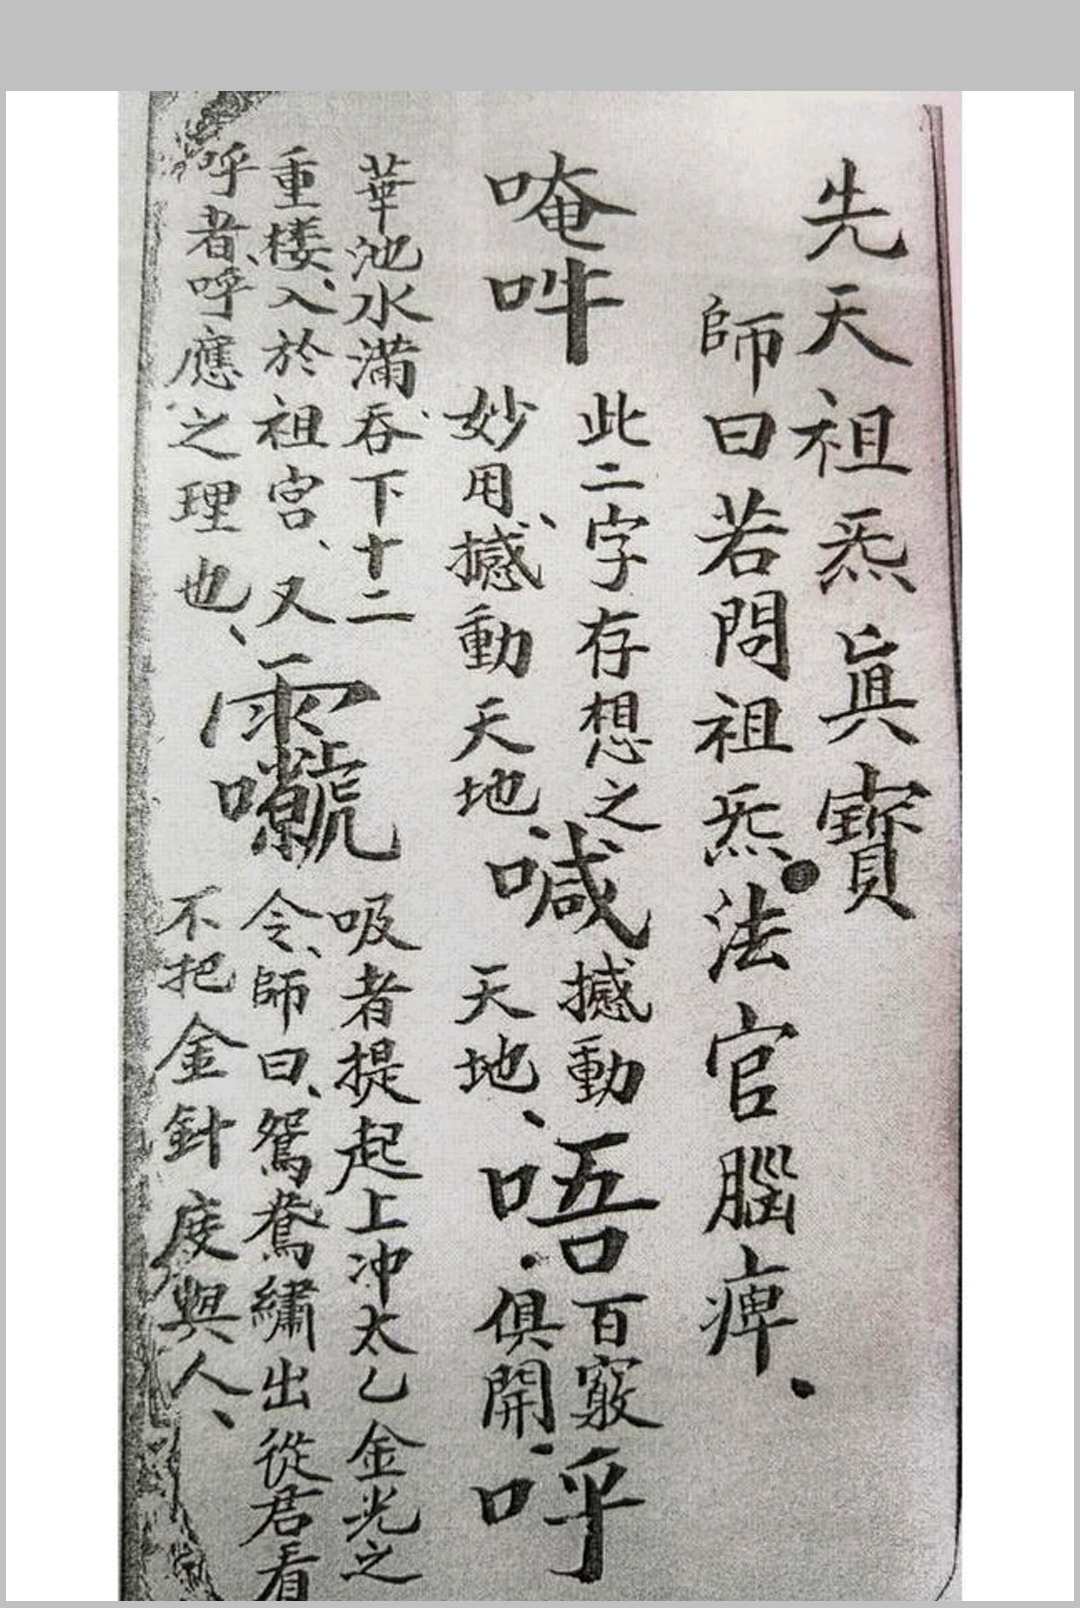 先天祖炁眞寶
師曰若問祖炁法官腦痺
唵吽
此二字存想之
妙用撼動天地
喊
撼動
天地
唔
百竅
俱開
呼
華池水滿吞下十二
重楼入於祖宮又
呼者呼應之理也
吸者提起上冲太乙金光之
令師曰鴛鴦繡出從君看
不把金針度與人